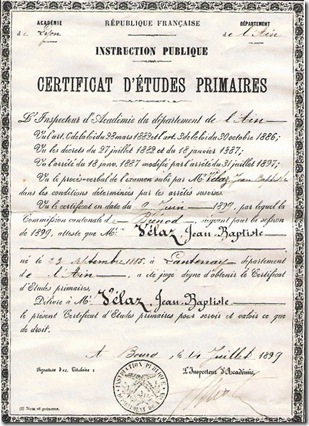 ACADÉMIE
de Lyon
RÉPUBLIQUE FRANÇAISE
DÉPARTEMENT
de l'Ain
INSTRUCTION PUBLIQUE
CERTIFICAT D'ÉTUDES PRIMAIRES
L'Inspecteur d'Académie du département de l'Ain
Vu l'art. 6 de la loi du 28 mars 1882 et l'art. 3 de la loi du 30 octobre 1886;
Vu les décrets du 27 juillet 1882 et du 18 janvier 1887;
Vu l'arrêté du 18 janv. 1887 modifié par l'arrêté du 31 juillet 1897;
Vu le procès-verbal de l'examen subi par M Vélaz Jean Baptiste
dans les conditions déterminées par les arrêtés susvisés
Vu le certificat en date du 9 Juin 1899, par lequel la
Commission cantonale d siégeant pour la session
de 1899, atteste que M Vélaz Jean Baptiste
né le 23 septembre 1885, à département
de l'Ain, a été jugé digne d'obtenir le Certificat
d'Études primaires,
Délivre à M Vélaz, Jean Baptiste
le présent Certificat d'Études primaires pour servir et valoir ce que
de droit.
A Bourg, le Juillet 1899
Signature du Titulaire :
L'Inspecteur d'Académie,
INSTRUCTION PUBLIQUE
(1) Nom et prénoms.